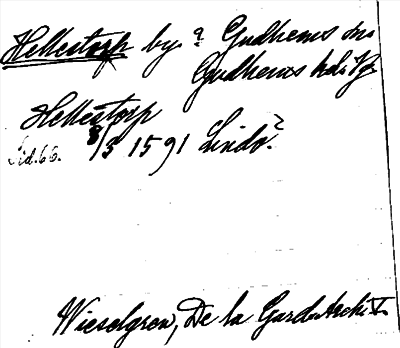 Hellestorp by ? Gudhems sn
Gudhems hd. Vg.
Hellestorp
Sid. 66. 8/3 1591 Lindö?
Wieselgren, De la Gard. Archiv I.